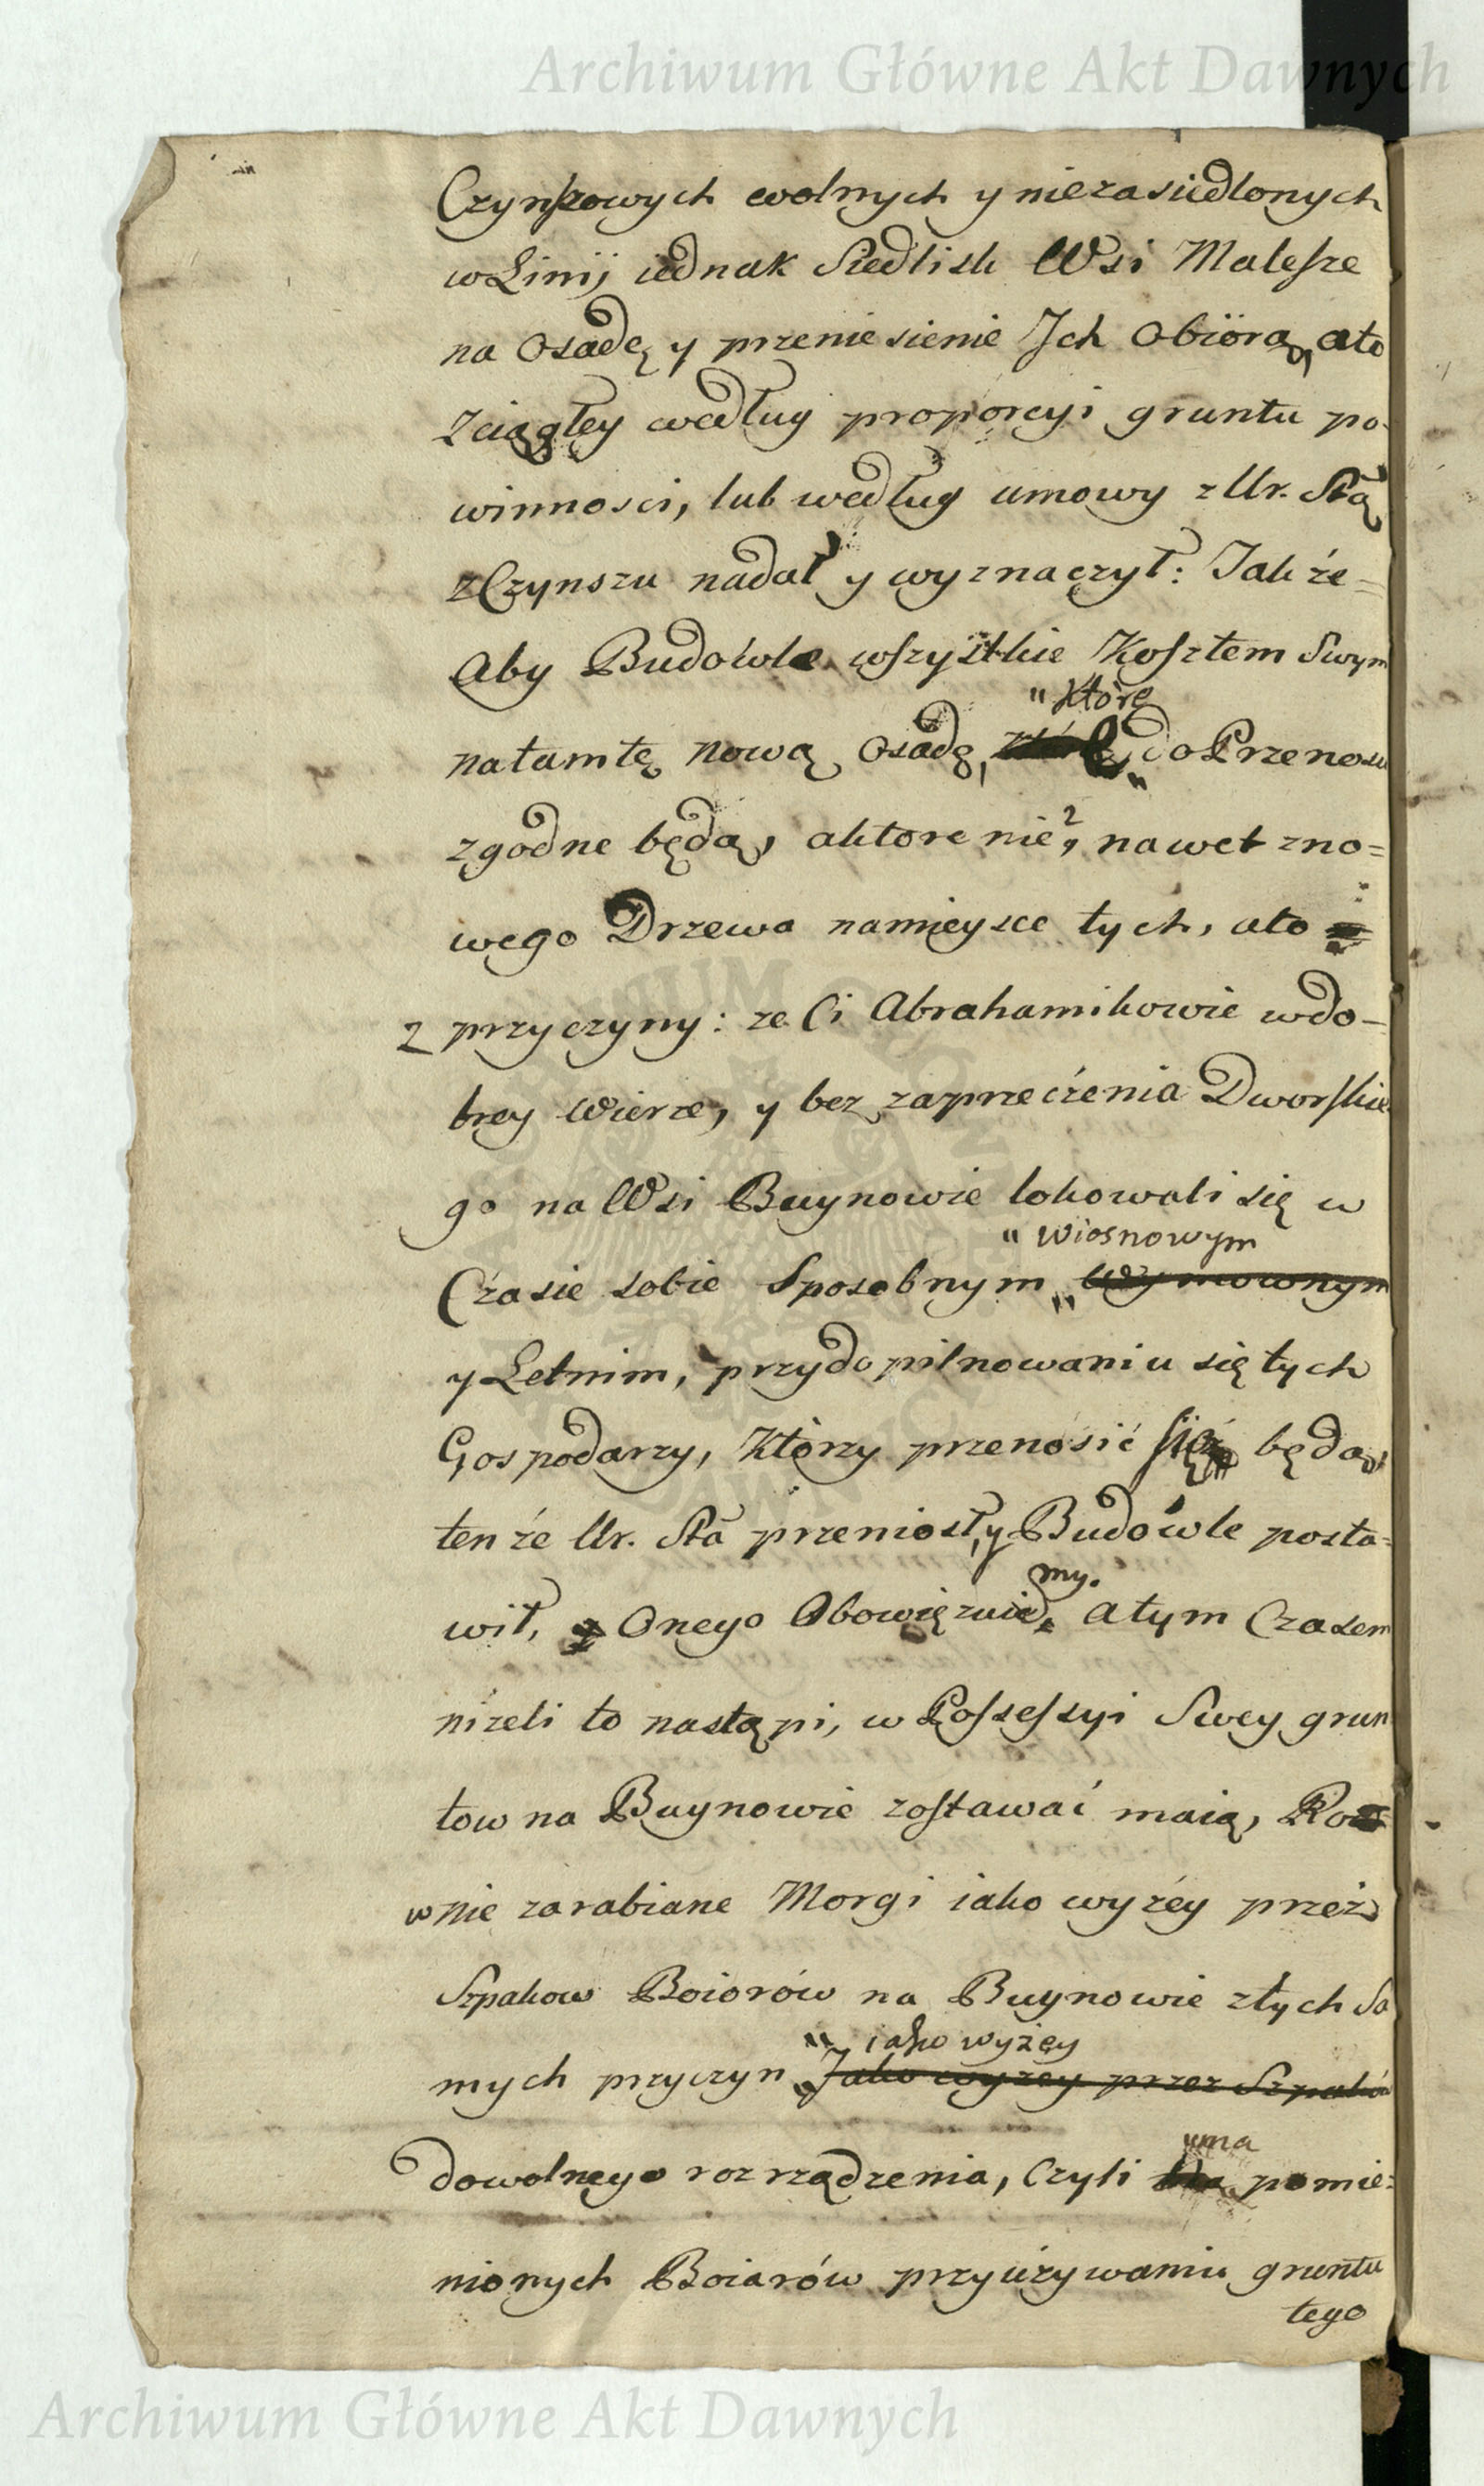 Archiwum Główne Akt Dawnych
Czynszowych wolnych y niezasiedlonych
w Linij iednak Siedlisk Wsi Malesze
na Osadę y przeniesienie Ich Obiorą, a to
Zciągłey według proporcyi gruntu po-
winnosci, lub według umowy z Ur. Stą
z Czynszu nadał y wyznaczył: Jakże
Aby Budowle wszystkie Kosztem Swym
" które
na tamtę nową Osadę, do Przenosu
zgodne będą, a ktore nie, nawet zno=
wego Drzewa na mieysce tych, a to
z przyczyny: ze Ci Abrahamikowie w do-
brey Wierze, y bez zaprzeczenia Dworskie
go na Wsi Buynowie lokowali się w
" wiosnowym
Czasie sobie Sposobnym „ Wymownym
y Letnim, przy dopilnowaniu się tych
Gospodarzy, Którzy przenosić się będą,
tenże Ur. Sta przeniosł, y Budowle posta=
my.
wił, Onego Obowięzuie, a tym Czasem
nizeli to nastąpi, w Possessyi Swey grun
tow na Buynowie zostawać maią, Ro
wnie zarabiane Morgi iako wyżey przez
Szpakow Boiorów na Buynowie z tych Sa
" iako wyżey
mych przyczyn „ Jako wyzey przez Szpaków
dowolnego rozrządzenia, Czyli pomie=
"ma
nionych Boiarów przy używaniu gruntu
tego
Archiwum Główne Akt Dawnych